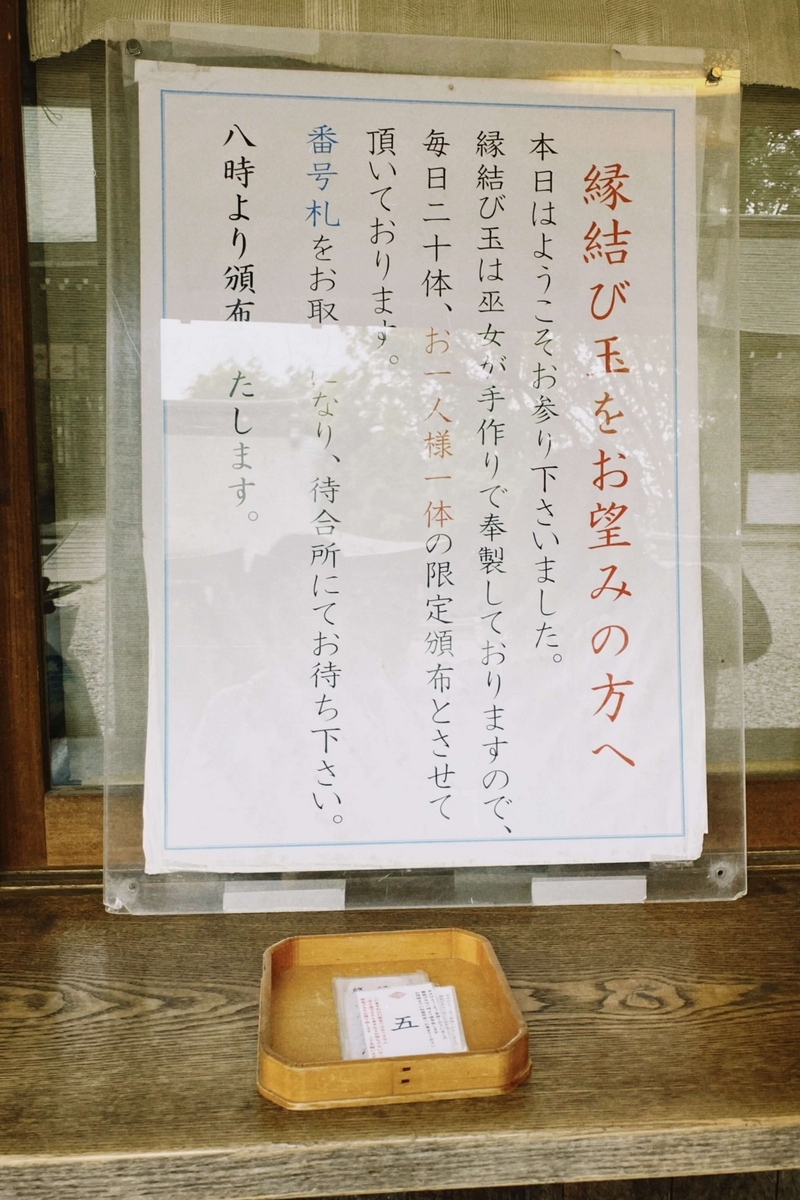 縁結び玉をお望みの方へ
本日はようこそお参り下さいました。
縁結び玉は巫女が手作りで奉製しておりますので、
毎日二十体、お一人様一体の限定頒布とさせて
頂いております。
番号札をお取 になり、待合所にてお待ち下さい。
八時より頒布 たします。
五